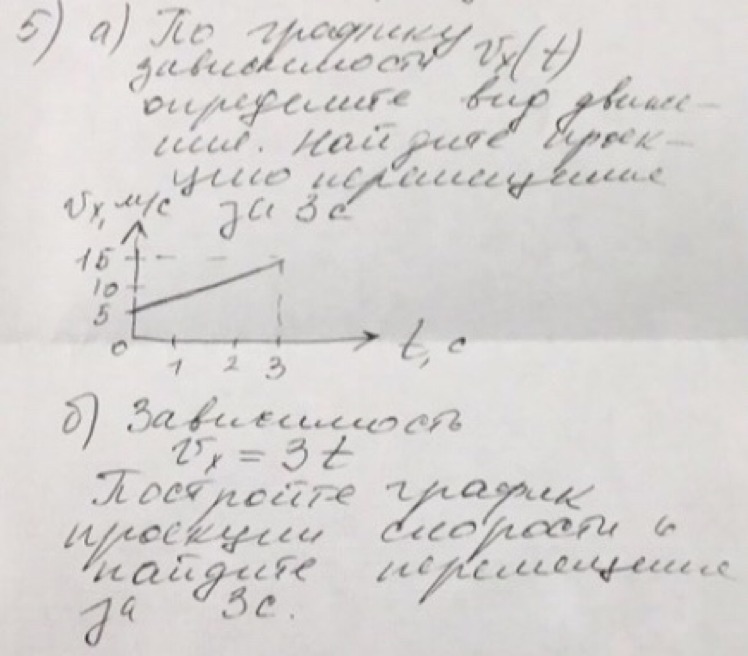 5) а) По графику
зависимости Vx(t)
определите вид движе-
ния. Найдите проек-
цию перемещения
за 3с
Vx, м/с
15
10
5
0
1 2 3
t, с
б) Зависимость
Vx = 3t
Постройте график
проекции скорости и
найдите перемещение
за 3с.